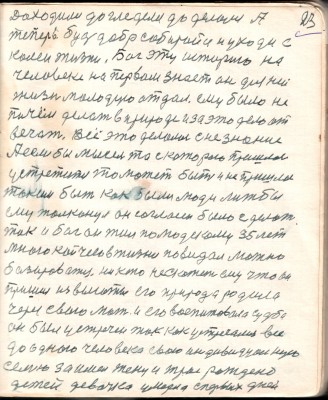 23
доходили до гледели до делали А
теперь буду добр собирайся и уходи с
моей жизни, Бог эту историю на
человеке на первом знает он для ней
жизнь молодую отдал. ему было не
в природе и за это дело от
вечат. Всё это делалось с незнание
А если бы мысль та с которою пришлось
устретить то может быть и не пришлось
таким быть как были люди
ему толкнул он согласен было сделать
так и Бог он жил по людскому 35 лет
много кой чего в жизни повидал можно
никто не скажет ему что он
пришел из высоты его природа родила
через свою мать и его воспитовала судьба
он был устречен так как устречались все
до одного человека свою индивидуальную
семью заимел жену и трое рождено
детей девочка умерла с первых дней